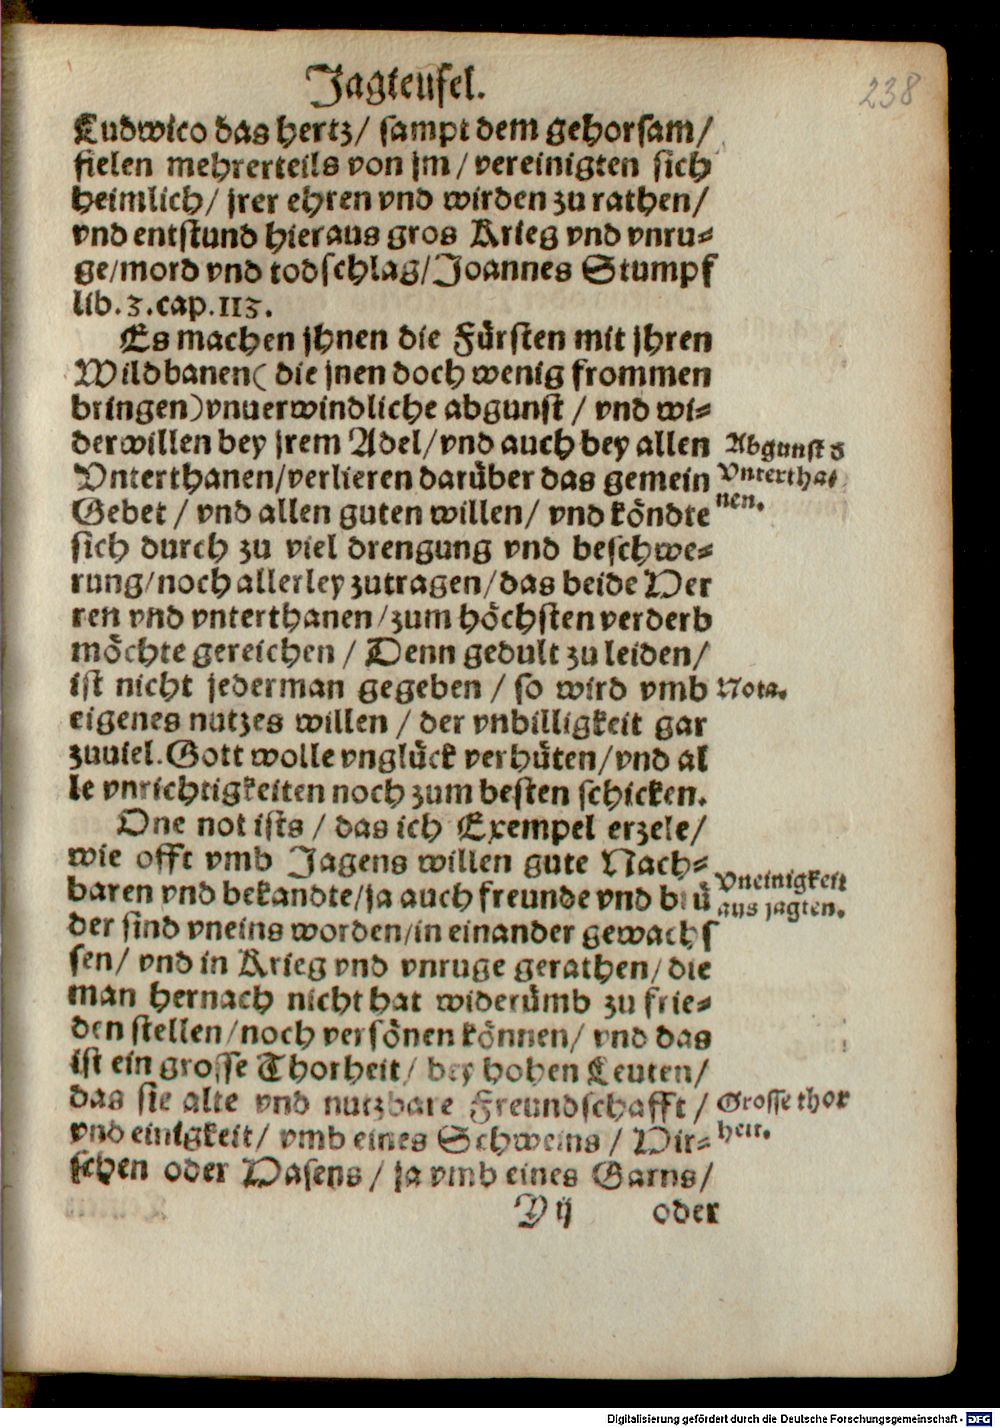 Jagteufel.
238
Ludwico das hertz/ sampt dem gehorsam/
fielen mehrerteils von jm/ vereinigten sich
heimlich/ jrer ehren vnd wirden zu rathen/
vnd entstund hieraus gros Krieg vnd vnru⸗
ge/mord vnd todschlag/Joannes Stumpf
lib.3.cap.113.
Es machen jhnen die Fürsten mit jhren
Wildbanen( die jnen doch wenig frommen
bringen)vnuerwindliche abgunst/ vnd wi⸗
derwillen bey jrem Adel/vnd auch bey allen
Abgunst d
Vnterthanen/verlieren darüber das gemein
Vntertha⸗
Gebet/ vnd allen guten willen/ vnd köndte
nen.
sich durch zu viel drengung vnd beschwe⸗
rung/noch allerley zutragen/das beide Her
ren vnd vnterthanen/zum höchsten verderb
möchte gereichen/ Denn gedult zu leiden/
ist nicht jederman gegeben/ so wird vmb
Nota.
eigenes nutzes willen/ der vnbilligkeit gar
zuuiel.Gott wolle vnglück verhüten/vnd al
le vnrichtigkeiten noch zum besten schicken.
One not ists/ das ich Exempel erzele/
wie offt vmb Jagens willen gute Nach⸗
Vneinigkeit
baren vnd bekandte/ja auch freunde vnd brü
aus jagten.
der sind vneins worden/in einander gewachs
sen/ vnd in Krieg vnd vnruge gerathen/die
man hernach nicht hat widerümb zu frie⸗
den stellen/noch versönen können/ vnd das
ist ein grosse Thorheit/ bey hohen Leuten/
das sie alte vnd nutzbare Freundschafft/
Grosse thor
vnd einigkeit/ vmb eines Schweins/ Hir⸗
heit.
schen oder Hasens/ ja vmb eines Garns/
V ij oder
Digitalisierung gefördert durch die Deutsche Forschungsgemeinschaft - DFG